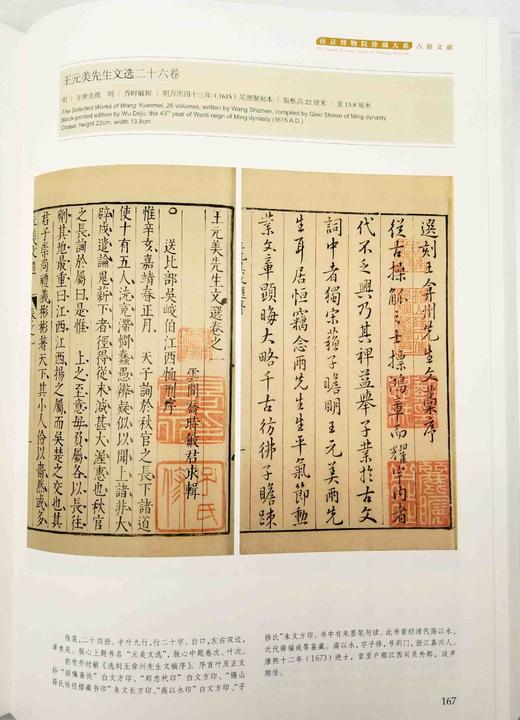 南京博物院珍藏大系 古籍文献
王元美先生文选二十六卷
明｜王世贞撰 明｜乔时敏辑｜明万历四十三年（1615）吴德聚刻本｜版框高22厘米｜宽13.8厘米
The Selected Works of Wang Yuanmei, 26 volumes, written by Wang Shizhen, compiled by Qiao Shimin of Ming dynasty
Block-printed edition by Wu Deju, the 43rd year of Wanli reign of Ming dynasty (1615 A.D.)
Chase: height 22cm, width 13.8cm
選刻王弇州先生文稾序
從古操觚之士操鴻章而耀宇内者
代不乏興乃其裨益舉子業於古文
詞中者獨宋蘓子瞻明王元美兩先
生耳居恒竊念兩先生生平氣節勳
業文章顯晦大略千古彷彿子瞻踈
王元美先生文選卷之一
雲間喬時敏君求輯
送比部吳峻伯江西恤刑序
惟辛亥嘉靖春正月 天子詢於秋官之長下諸道
使十有五人洗冤滯憫蠢愚辨疑似以聞上諸非大
辟咸遣論鬼薪下者徑得從末減甚大渥惠也秋官
之長詢於屬曰是惟 上之至意 各以長往
劇其地最重曰江西江西揚之屬而吳楚之交也其
君子崇尚禮義彬彬著天下其小人俗以嗇然或多
线装，二十四册。半叶九行，行二十字。白口，左右双边，
单鱼尾。版心上题书名“元美文选”，版心中题卷次、叶次。
前有乔时敏《选刻王弇州先生文稿序》。序首叶及正文
卷端“丽嘱斋收”白文方印、“郑忠枕印”白文方印、“锡山
薛氏传经楼藏书印”朱文长方印、“高以永印”白文方印、“子
修氏”朱文方印。书中有朱墨笔句读。此书曾经清代高以永、
近代薛福成等鉴藏。高以永，字子修，号荆门，浙江嘉兴人。
康熙十二年（1673）进士，官至户部江西司员外郎，政声
颇佳。
167